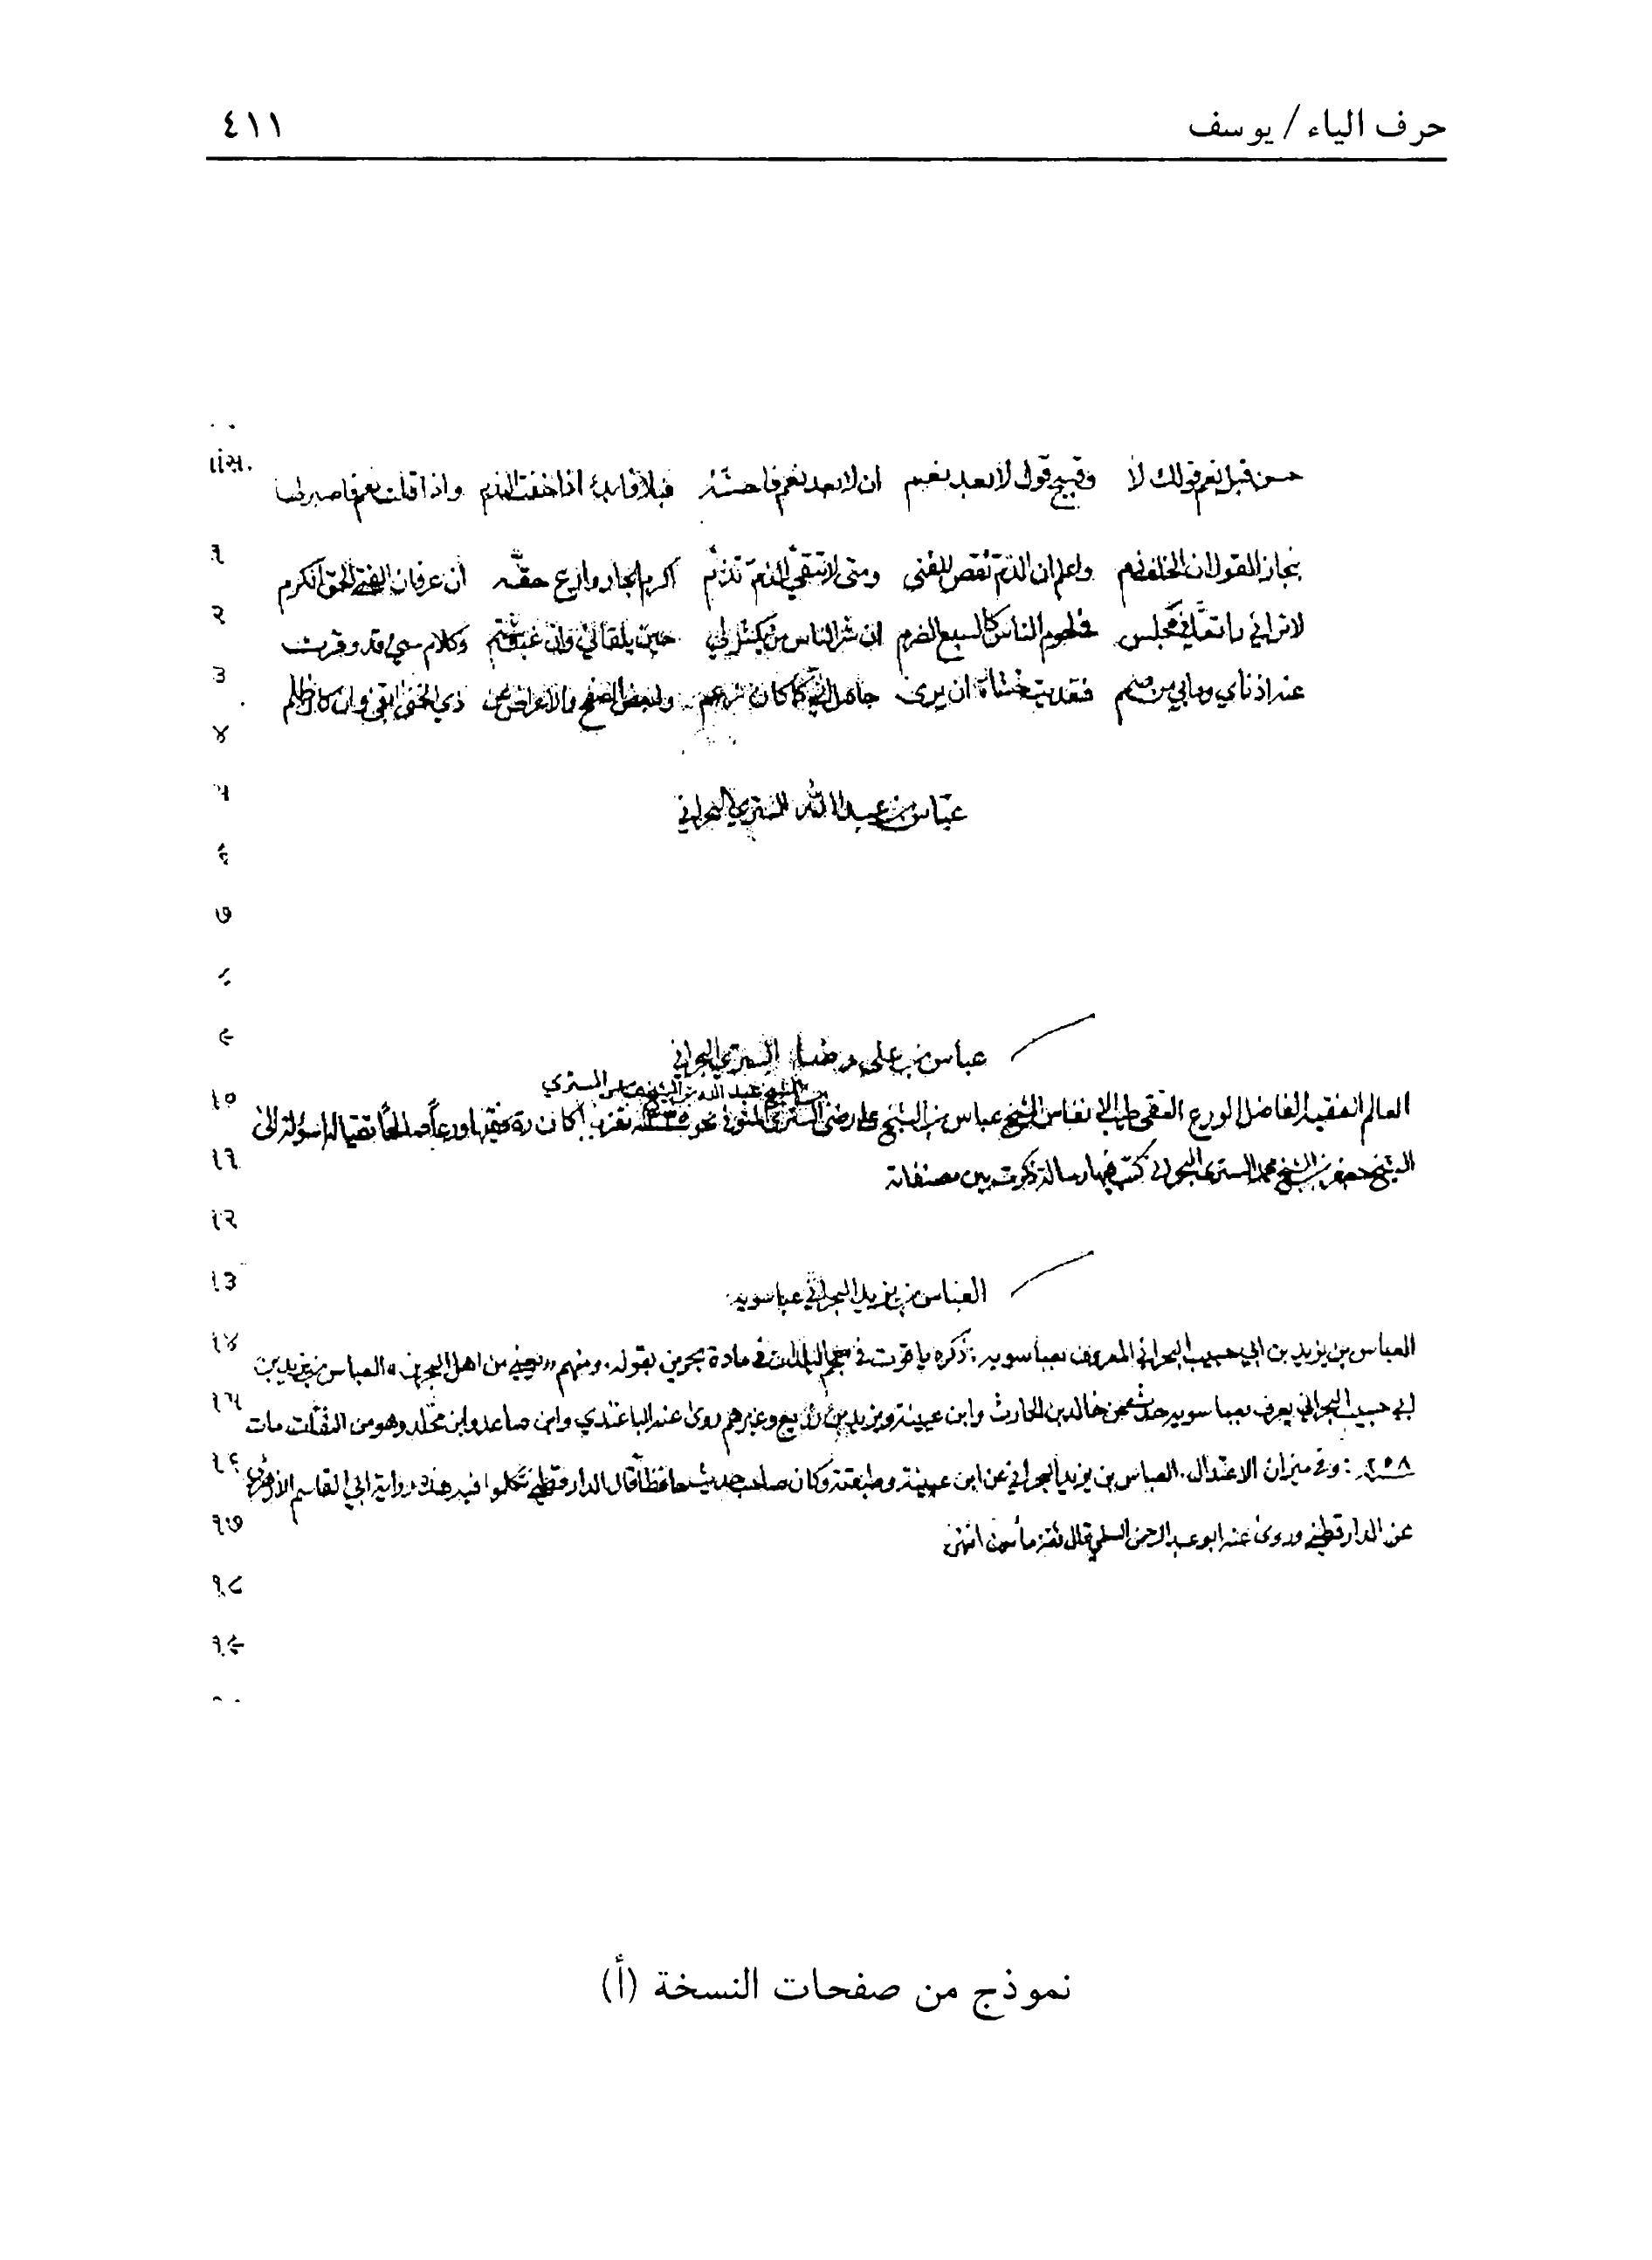 حرف الياء / يوسف
٤١١
حسن قبل نعم قولك لا وقبيح قول لا بعد نعم ان لا بعد نعم فاحشة فبلا فابدأ اذا خفت الندم واذا قلت نعم فاصبر لها
بنجاز القول ان الخلف ذم واعلم ان الذم نقص للفتى ومتى لا تتقي الذم تذم اكرم الجار وارع حقه ان عرفان الفتى الحق كرم
لا تراني راتعاً في مجلس في لحوم الناس كالسبع الضرم ان شر الناس من يكشر لي حين يلقاني وان غبت شتم وكلام سيئ قد وقرت
عنه اذناي وما بي من صمم فتعديت خشاة ان يرى جاهل اني كما كان زعم ولبعض الصفح والاعراض عن ذي الخنى ابقى وان كان ظلم
عباس بن عبد الله الستري البحراني
عباس بن علي رضا الستري البحراني
بن الشيخ عبد الله بن الشيخ الستري
العالم الفقيه الفاضل الورع التقي طيب الانفاس الشيخ عباس بن الشيخ علي رضي الستري المتوفى نحو تقريباً كان ره فقيها ورعاً صالحاً تقيا له اسولة الى
الشيخ جعفر بن الشيخ محمد الستري البحراني كتب فيها رسالة ذكرت بين مصنفاته
العباس بن يزيد البحراني عباسويه
العباس بن يزيد بن ابي حبيب البحراني المعروف بعباسويه : ذكره ياقوت في معجم البلدان في مادة بحرين بقوله ومنهم من اهل البحرين العباس بن يزيد بن
ابي حبيب البحراني يعرف بعباسويه حدث عن خالد بن الحارث وابن عيينة ويزيد بن زريع وغيرهم روى عنه الباغندي وابن صاعد وابن مخلد وهو من الثقات مات
٢٥٨ : وفي ميزان الاعتدال العباس بن يزيد البحراني عن ابن عيينة وطبقته وكان صاحب حديث حافظاً قال الدارقطني تكلموا فيه هذه رواية ابي القاسم الازهري
عن الدارقطني وروى عنه ابو عبد الرحمن السلمي قال ثقة مأمون انتهى
نموذج من صفحات النسخة (أ)